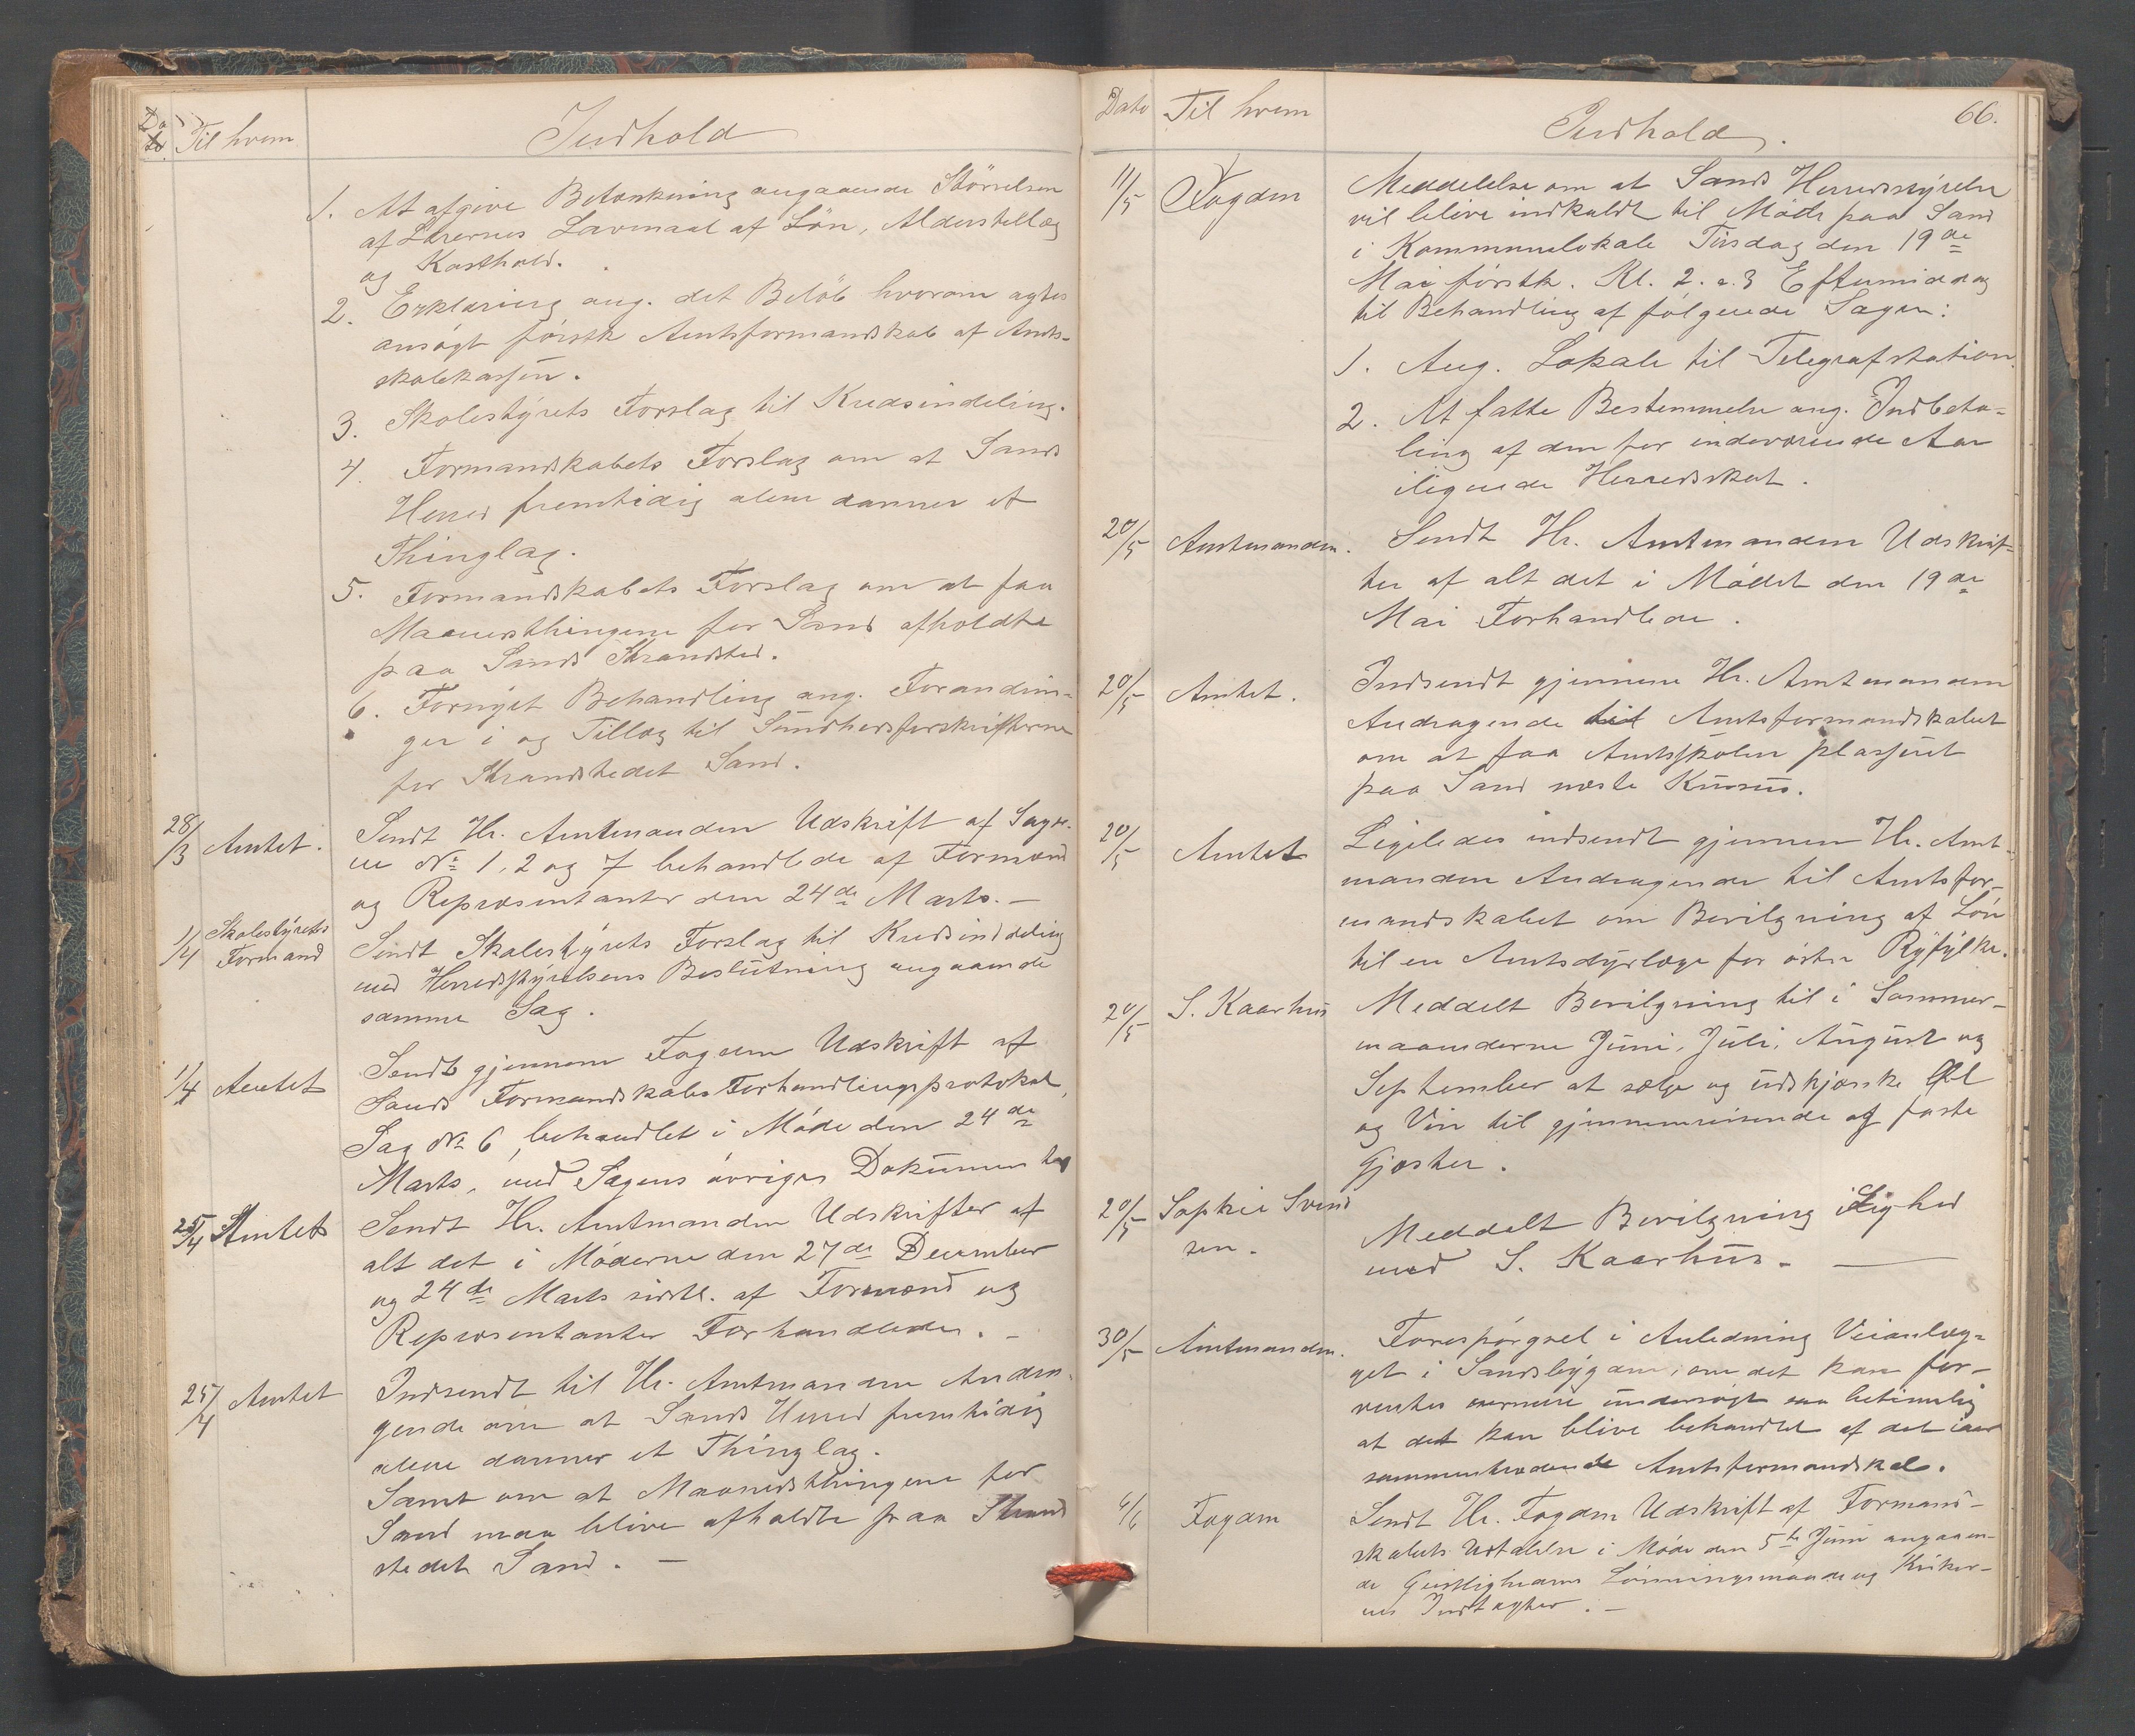 Dato Til hvem Indhold
1. At afgive Betænkning angaaende Störrelsen
af Lærernes Lavmaal af Lön, Alderstillæg
og Kosthold.
2. Erklæring ang. det Belöb hvorom agtes
ansögt förstk Amtsformandskab af Amts-
skolekassen.
3. Skolestyrets Forslag til Kredsindeling.
4. Formandskabets Forslag om at Sands
Herred fremtidig alene danner et
Thinglag.
5. Formandskabets Forslag om at faa
Maanedsthingene for Sand afholdte
paa Sands Strandsted.
6. Fornyet Behandling ang. Forandrin-
ger i og Tillæg til Sundhedsforskrifterne
for Strandstedet Sand.
28/3 Amtet. Sendt Hr. Amtmanden Udskrift af Sager-
ne No 1, 2 og 7 behandlede af Formænd
og Repræsentanter den 24de Marts. —
1/4 Skolestyrets Formand Sendt Skolestyrets Forslag til Kredsinddeling
med Herredsstyrelsens Beslutning angaaende
samme Sag.
1/4 Amtet Sendt gjennem Fogden Udskrift af
Sands Formandskabs Forhandlingsprotokol,
Sag No 6, behandlet i Möde den 24de
Marts, med Sagens övriges Dokumenter
25/4 Amtet Sendt Hr. Amtmanden Udskrifter af
alt det i Möderne den 27de December
og 24de Marts sidstl. af Formænd og
Repræsentanter Forhandlede. —
25/4 Amtet Indsendt til Hr. Amtmanden Andra-
gende om at Sands Herred fremtidig
alene danner et Thinglag.
Samt om at Maanedsthingene for
Sand maa blive afholdte paa Strand
stedet Sand. —
Dato Til hvem Indhold. 66.
11/5 Fogden Meddelelse om at Sands Herredsstyrelse
vil blive indkaldt til Möde paa Sand
i Kommunelokale Tirsdag den 19de
Mai förstk. Kl. 2 a 3 Eftermiddag
til Behandling af fölgende Sager:
1. Ang. Lokale til Telegrafstation.
2. At fatte Bestemmelse ang. Indbeta-
ling af den for indeværende Aar
ilignede Herredsskat.
20/5 Amtmanden. Sendt Hr. Amtmanden Udskrif-
ter af alt det i Mödet den 19de
Mai Forhandlede.
20/5 Amtet. Indsendt gjennem Hr. Amtmanden
Andragende til Amtsformandskabet
om at faa Amtsskolen plasseret
paa Sand næste Kursus.
20/5 Amtet Ligeledes indsendt gjennem Hr. Amt-
manden Andragende til Amtsfor-
mandskabet om Bevilgning af Lön
til en Amtsdyrlæge for östre Ryfylke.
20/5 S. Kaarhus Meddelt Bevilgning til i Sommer-
maanederne Juni, Juli, August og
September at sælge og udskjænke Øl
og Vin til gjennemreisende og faste
Gjæster.
20/5 Sophie Svend
sen. Meddelt Bevilgning i Lighed
med S. Kaarhus. —
30/5 Amtmanden. Forespörgsel i Anledning Veianlæg-
get i Sandsbygden, om det kan for-
ventes nærmere undersögt saa betimelig
at det kan blive behandlet af det iaar
sammentrædende Amtsformandskab.
6/6 Fogden Sendt Hr. Fogden Udskrift af Formand-
skabets Udtalelse i Möde den 5te Juni angaaen-
de Geistlighedens Lönningsmaade og Kirker-
nes Indtægter. —